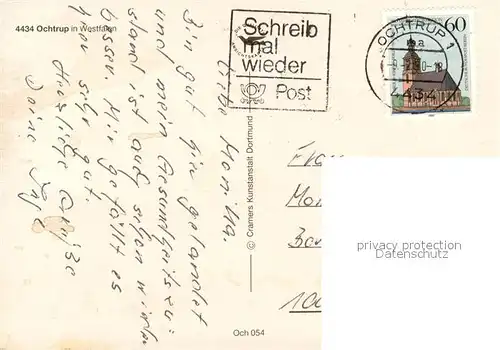 4434 Ochtrup in Westfalen
Schreib
mal
wieder
Post
OCHTRUP 1
4434
60
Liebe Monika.
Bin gut hier gelandet
und mein Gesundheitszu-
stand ist auch schon wieder
besser. Mir gefällt es
hier sehr gut.
Herzliche Grüße
Deine
© Cramers Kunstanstalt Dortmund
Och 054
Frau
privacy protection
Datenschutz